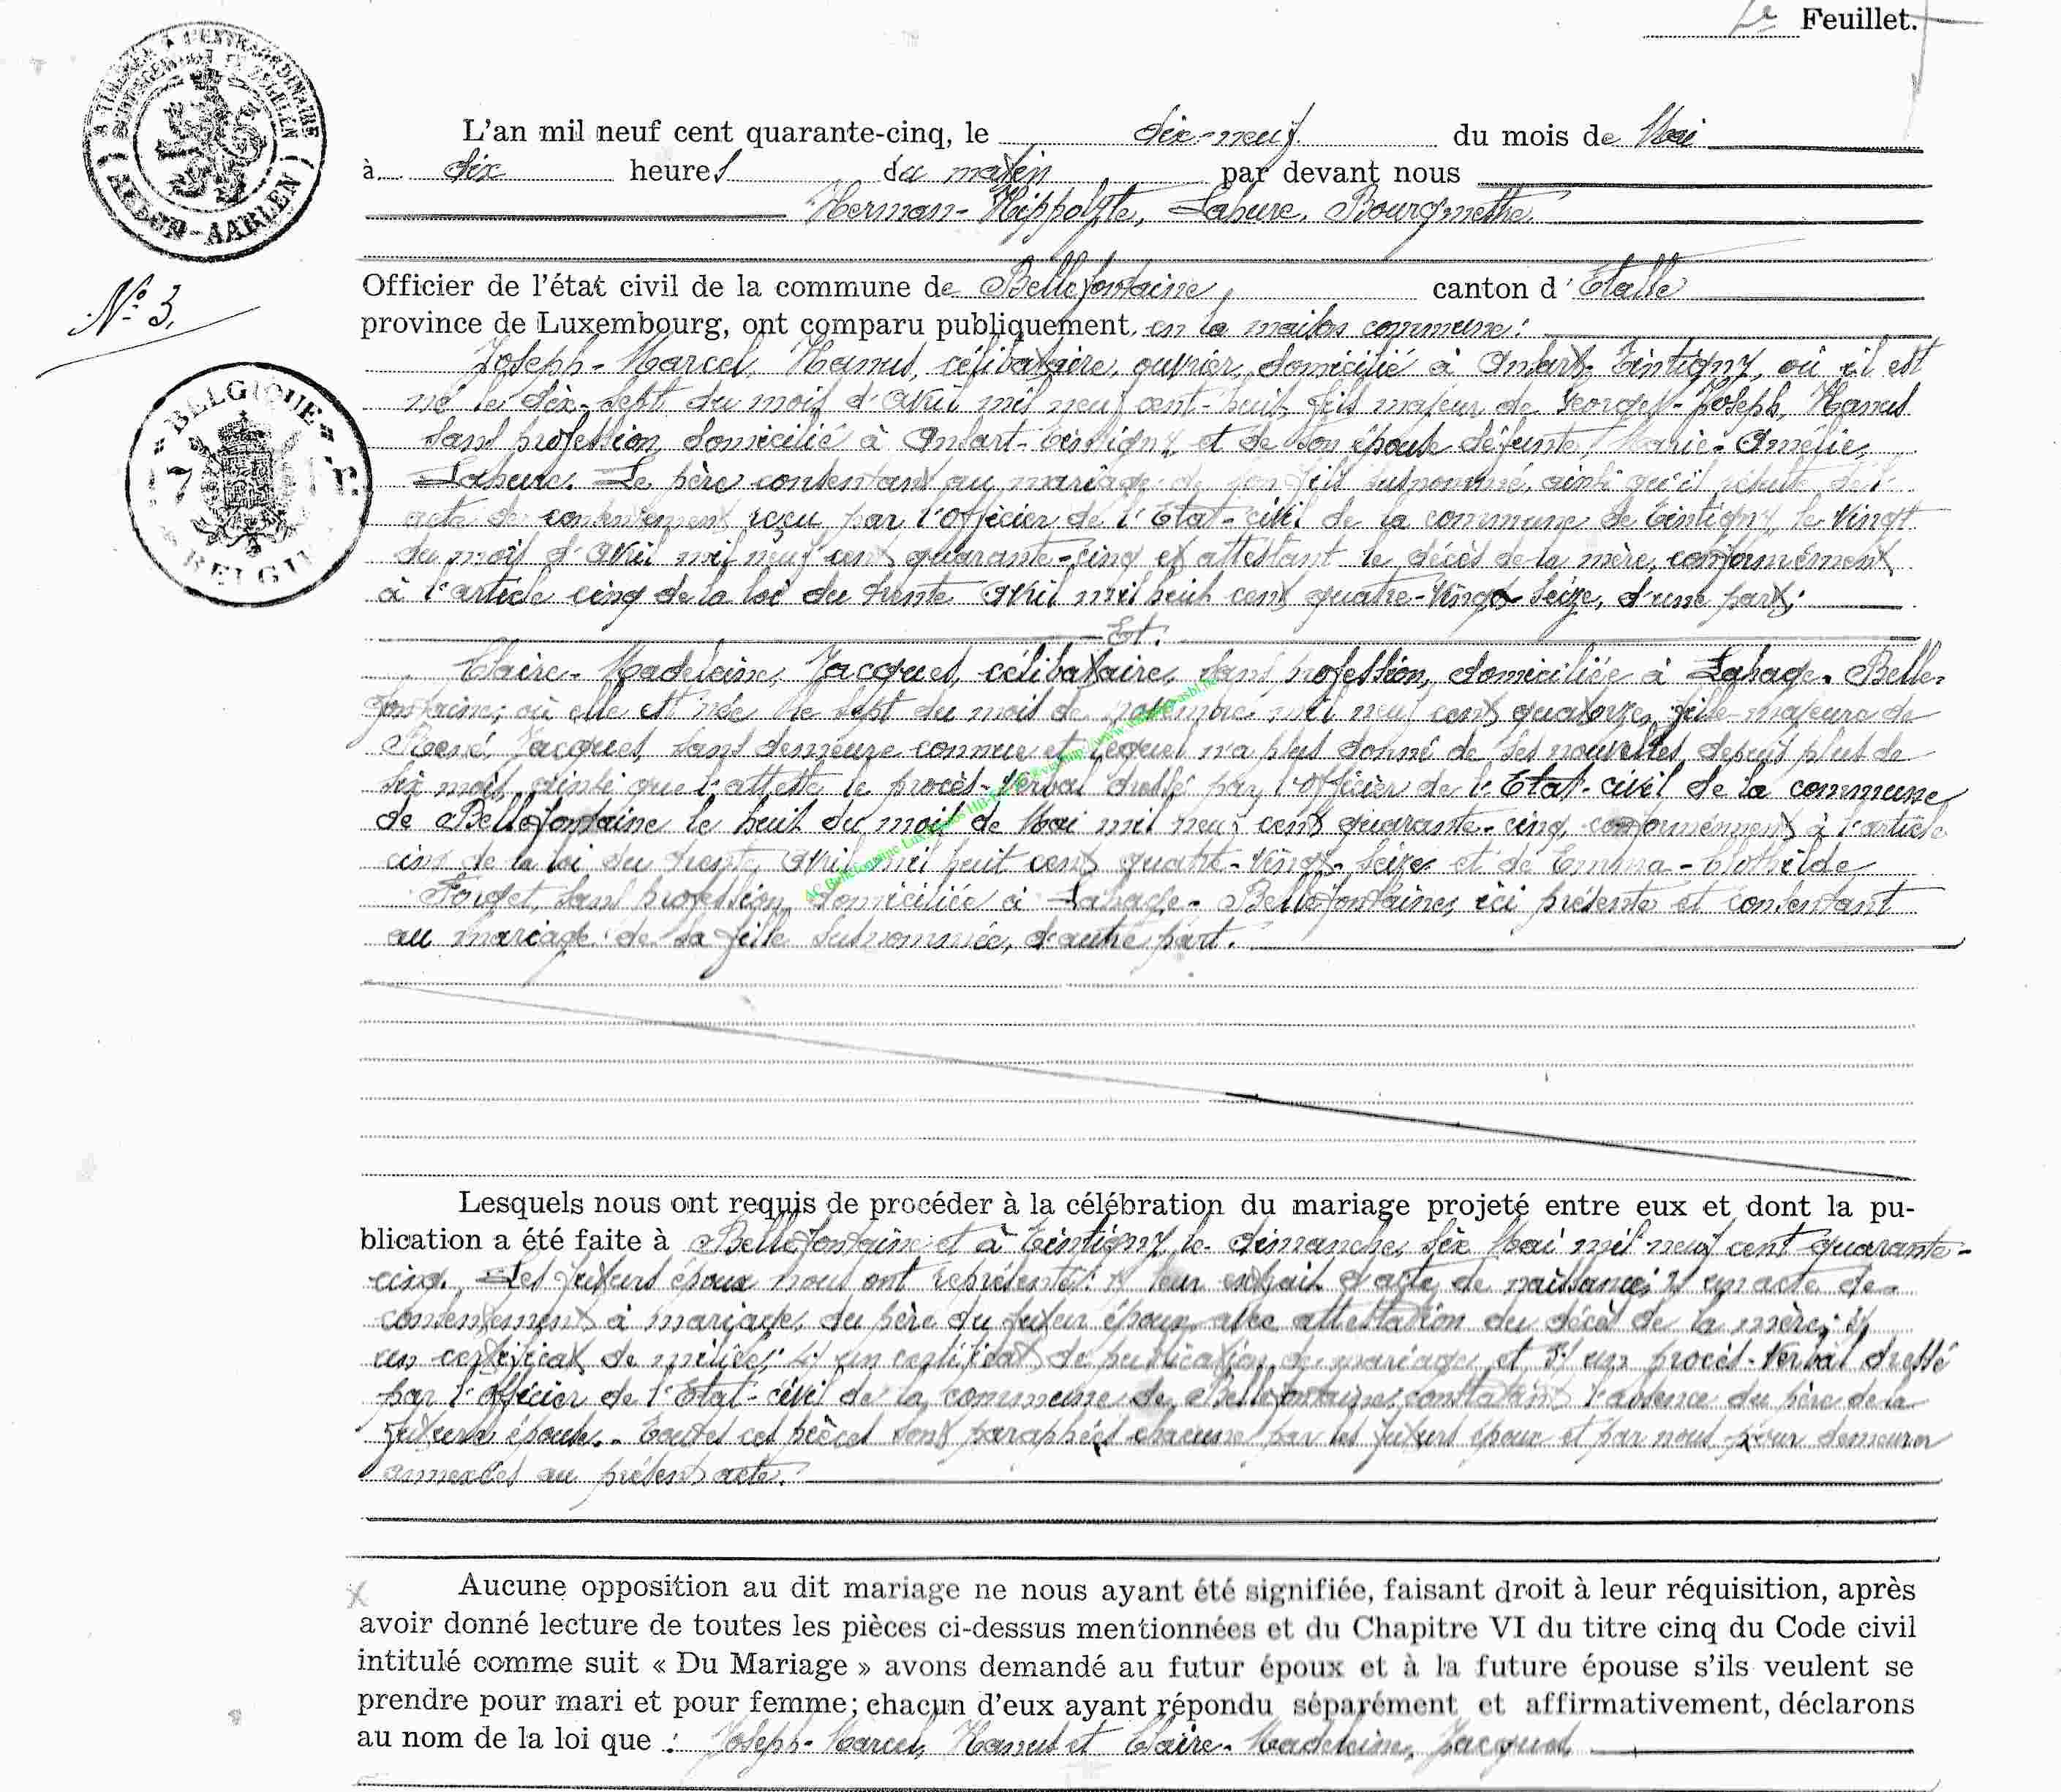 Feuillet.
L'an mil neuf cent quarante-cinq, le dix-neuf du mois de Mai
à dix heures du matin par devant nous
Herman-Hippolyte, Lahure, Bourgmestre
Officier de l'état civil de la commune de Bellefontaine canton d'Etalle
N° 3.
province de Luxembourg, ont comparu publiquement, en la maison commune:
Joseph-Marcel, Hanus, célibataire, ouvrier, domicilié à Ansart-Tintigny, où il est
né le dix-sept du mois d'Avril mil neuf cent-huit, fils majeur de Georges-Joseph, Hanus
sans profession, domicilié à Ansart-Tintigny, et de son épouse défunte, Marie-Amélie,
Lahure. Le père consentant au mariage de son fils susnommé, ainsi qu'il résulte de l'
acte de consentement reçu par l'officier de l'Etat-civil de la commune de Tintigny, le vingt
du mois d'Avril mil neuf cent quarante-cinq et attestant le décès de la mère, conformément
à l'article cinq de la loi du trente Avril mil huit cent quatre-vingt seize, d'une part;
Et.
Claire-Madeleine, Jacques, célibataire, sans profession, domiciliée à Lahage-Belle-
fontaine, où elle est née le sept du mois de novembre mil neuf cent quatorze, fille majeure de
René, Jacques, sans demeure connue et lequel n'a plus donné de ses nouvelles depuis plus de
six mois, ainsi que l'atteste le procès-verbal dressé par l'officier de l'Etat-civil de la commune
de Bellefontaine le huit du mois de Mai mil neuf cent quarante-cinq, conformément à l'article
cinq de la loi du trente Avril mil huit cent quatre-vingt-seize et de Emma-Clothilde
Forget, sans profession, domiciliée à Lahage-Bellefontaine, ici présente et consentant
au mariage de sa fille susnommée, d'autre part.
Lesquels nous ont requis de procéder à la célébration du mariage projeté entre eux et dont la pu-
blication a été faite à Bellefontaine et à Tintigny, le dimanche, six Mai mil neuf cent quarante-
cinq. Les futurs époux nous ont représenté: 1° leur extrait d'acte de naissance; 2° un acte de
consentement à mariage, du père du futur époux avec attestation du décès de la mère; 3°
un certificat de milice; 4° un certificat de publication de mariage et 5° un procès-verbal dressé
par l'officier de l'Etat-civil de la commune de Bellefontaine, constatant l'absence du père de la
future épouse. Toutes ces pièces sont paraphées chacune par les futurs époux et par nous pour demeurer
annexées au présent acte.
Aucune opposition au dit mariage ne nous ayant été signifiée, faisant droit à leur réquisition, après
avoir donné lecture de toutes les pièces ci-dessus mentionnées et du Chapitre VI du titre cinq du Code civil
intitulé comme suit « Du Mariage » avons demandé au futur époux et à la future épouse s'ils veulent se
prendre pour mari et pour femme; chacun d'eux ayant répondu séparément et affirmativement, déclarons
au nom de la loi que : Joseph-Marcel, Hanus et Claire-Madeleine, Jacques,
BELGIQUE
BELGIË